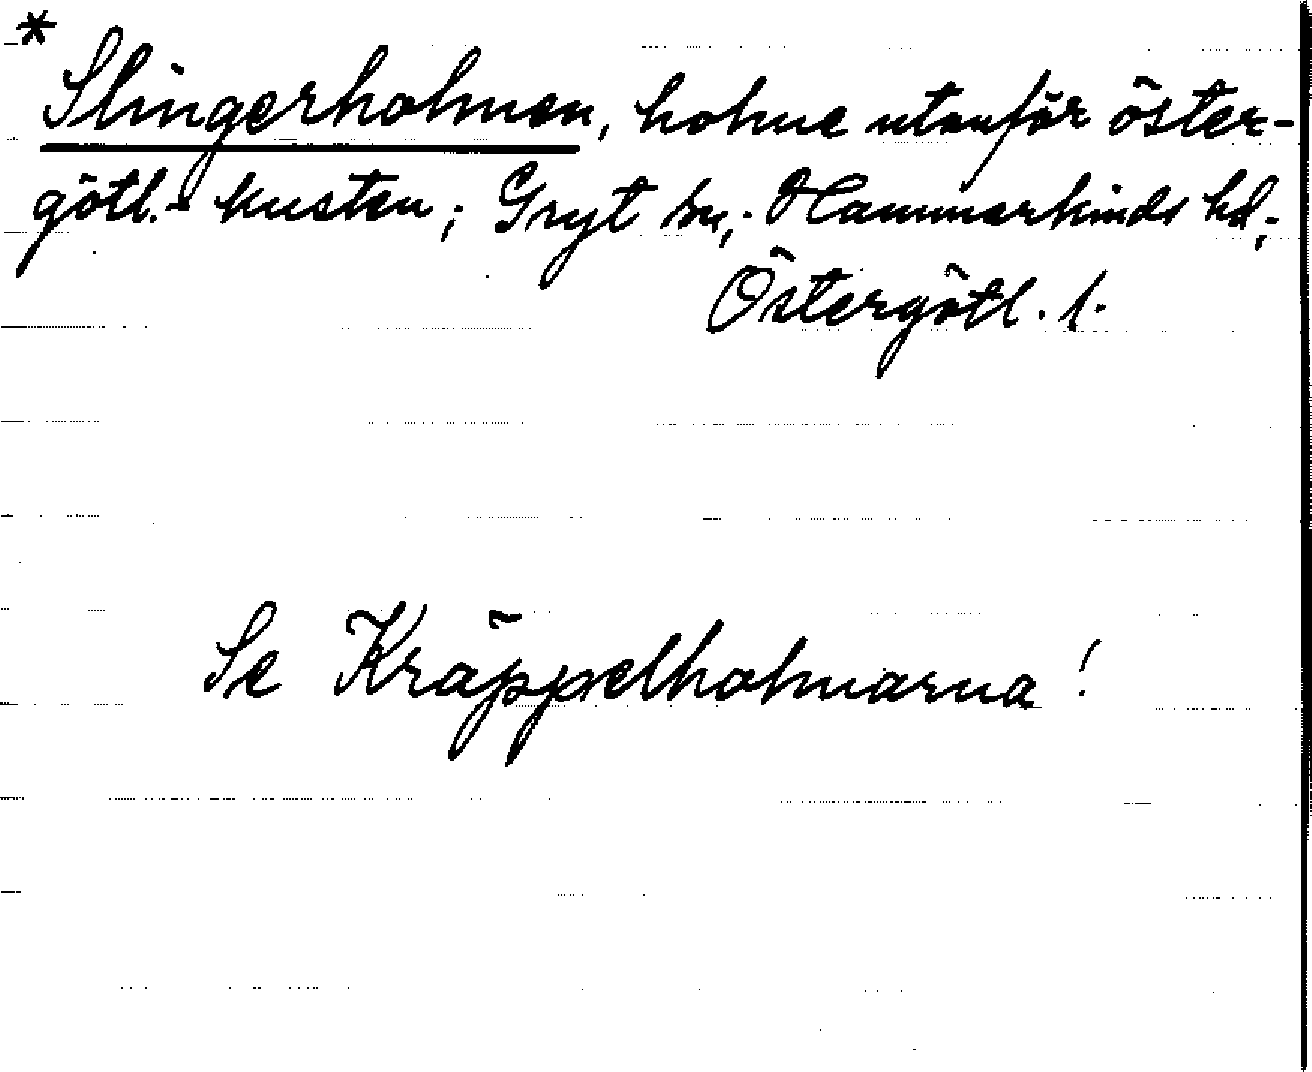 * Slingerholmen, holme utanför öster-
götl.-kusten; Gryt sn,; Hammarkinds hd,;
Östergötl. l.
Se Kräppelholmarna!